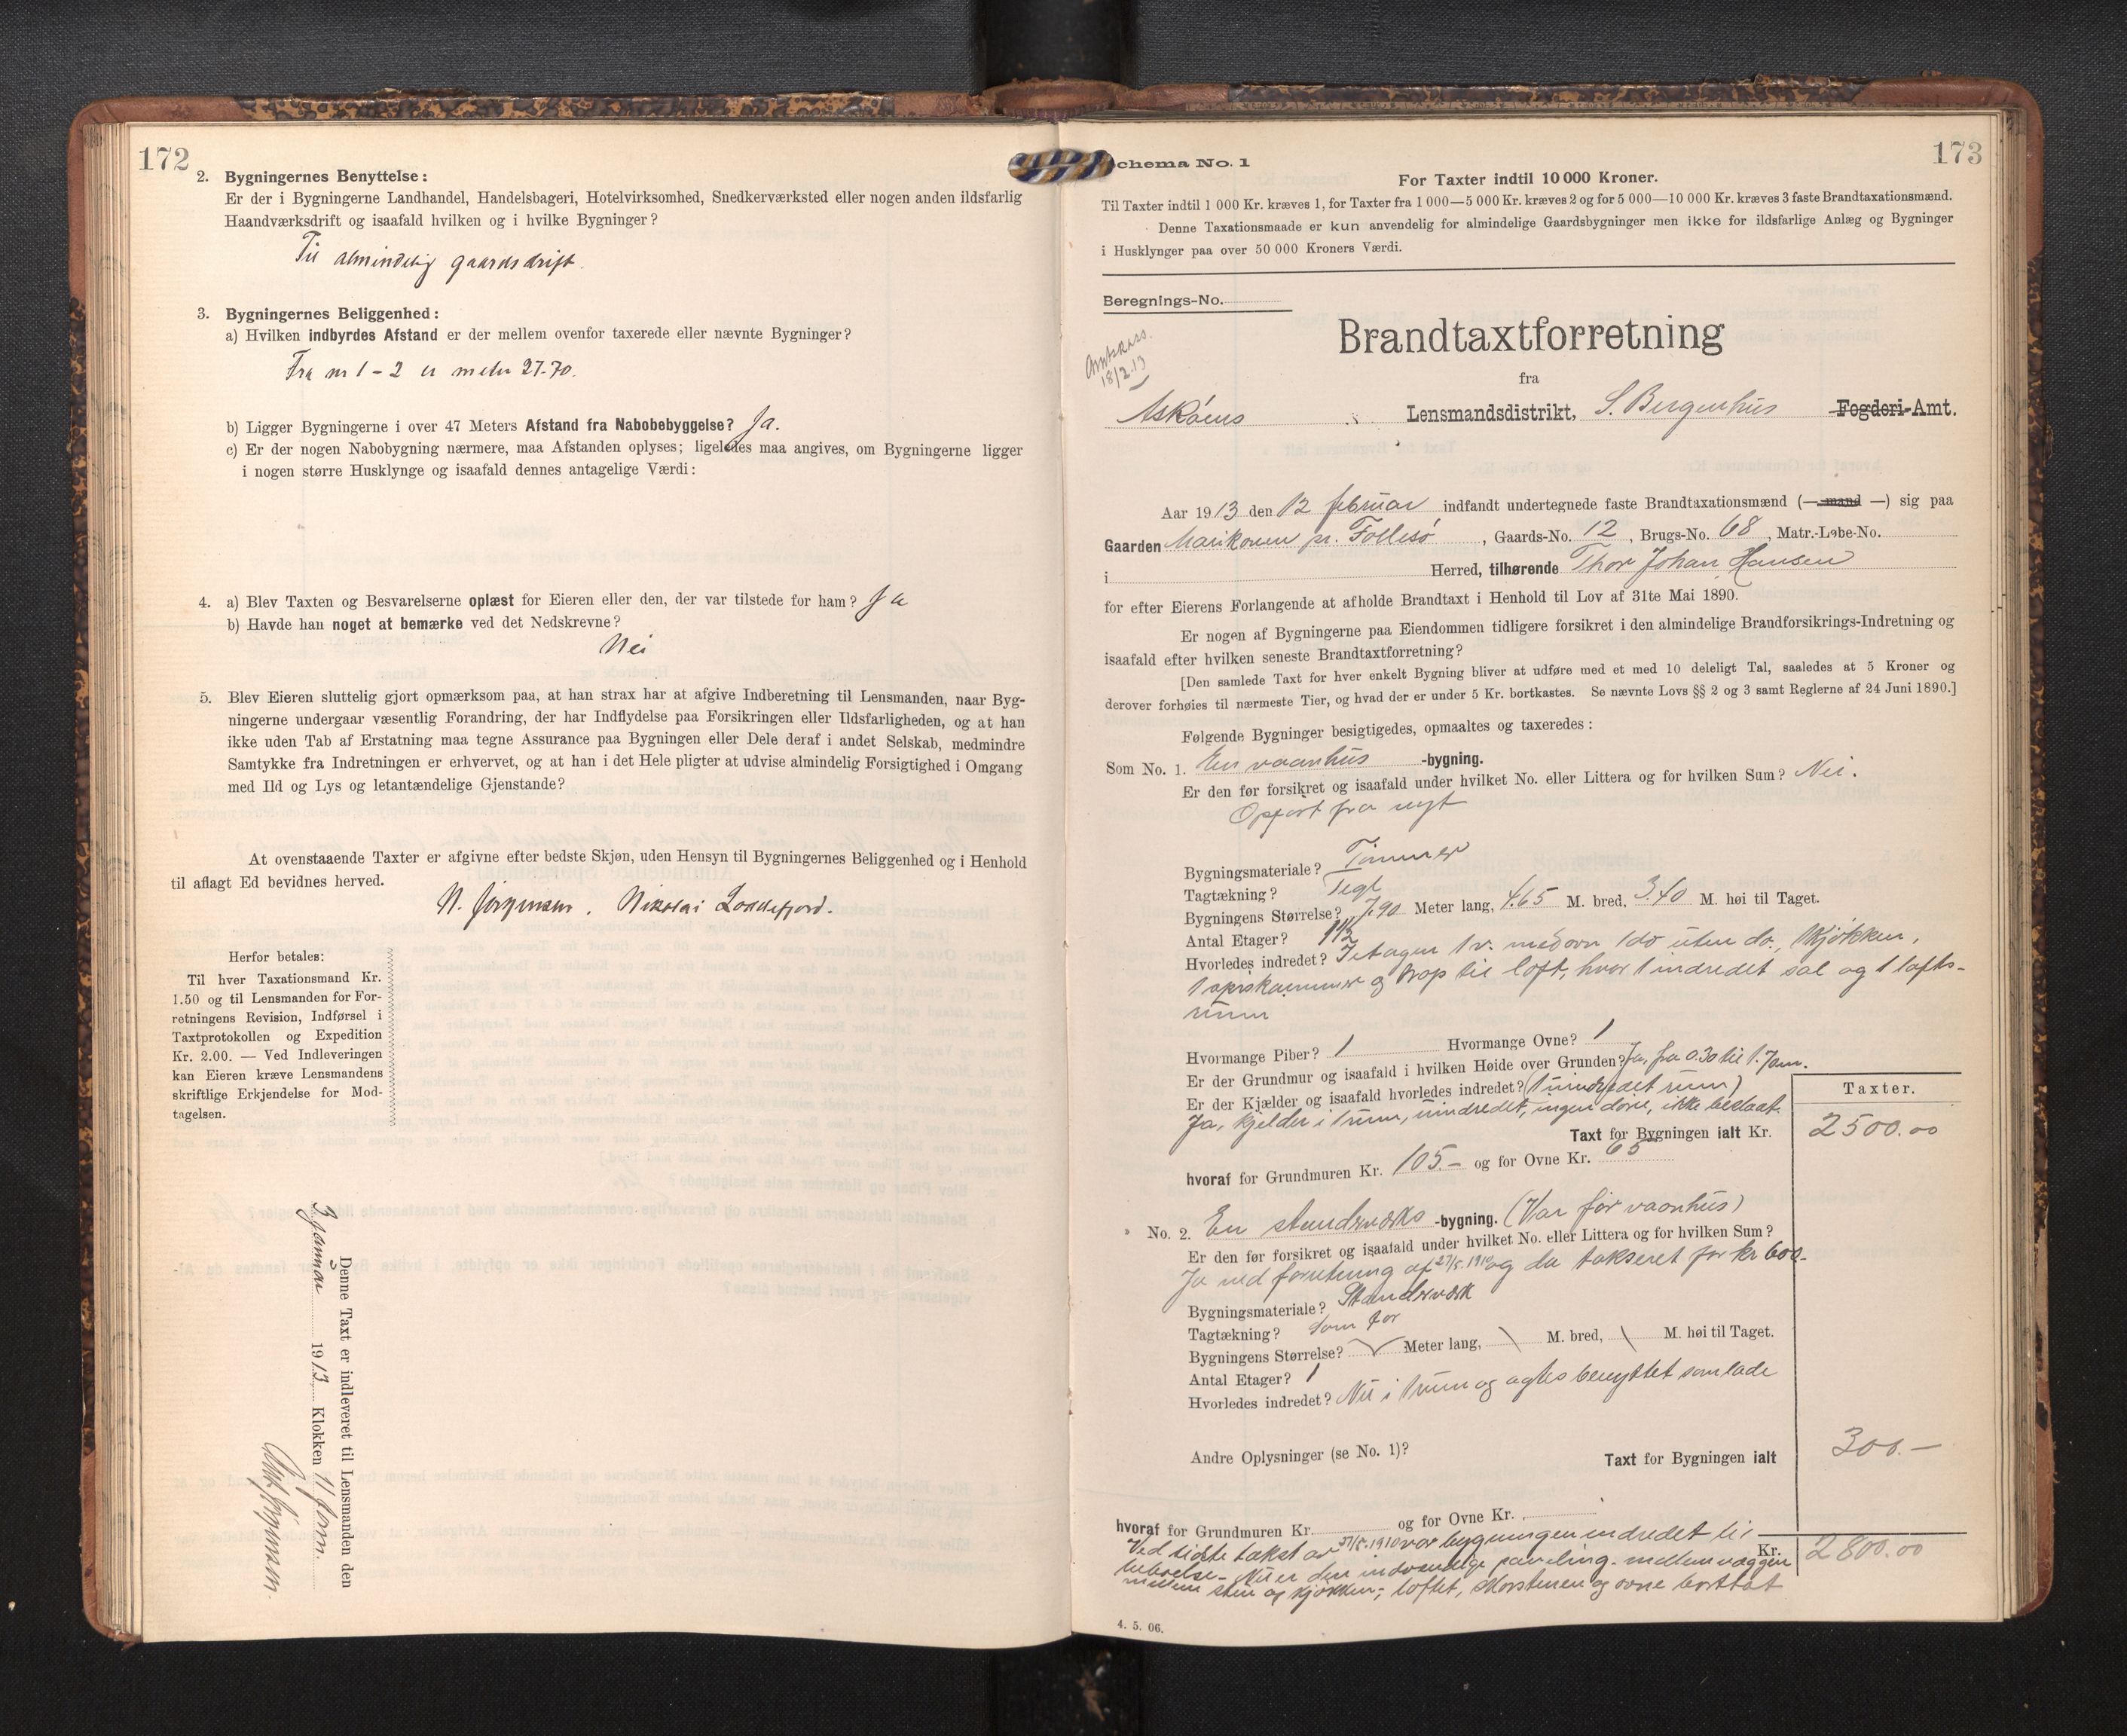 172
2. Bygningernes Benyttelse:
Er der i Bygningerne Landhandel, Handelsbageri, Hotelvirksomhed, Snedkerværksted eller nogen anden ildsfarlig
Haandværksdrift og isaafald hvilken og i hvilke Bygninger?
Til almindelig gaardsdrift.
3. Bygningernes Beliggenhed:
a) Hvilken indbyrdes Afstand er der mellem ovenfor taxerede eller nævnte Bygninger?
Fra nr 1 - 2 er meter 27.70.
b) Ligger Bygningerne i over 47 Meters Afstand fra Nabobebyggelse? Ja.
c) Er der nogen Nabobygning nærmere, maa Afstanden oplyses; ligeledes maa angives, om Bygningerne ligger
i nogen større Husklynge og isaafald dennes antagelige Værdi:
4. a) Blev Taxten og Besvarelserne oplæst for Eieren eller den, der var tilstede for ham? Ja
b) Havde han noget at bemærke ved det Nedskrevne?
Nei
5. Blev Eieren sluttelig gjort opmærksom paa, at han strax har at afgive Indberetning til Lensmanden, naar Byg-
ningerne undergaar væsentlig Forandring, der har Indflydelse paa Forsikringen eller Ildsfarligheden, og at han
ikke uden Tab af Erstatning maa tegne Assurance paa Bygningen eller Dele deraf i andet Selskab, medmindre
Samtykke fra Indretningen er erhvervet, og at han i det Hele pligter at udvise almindelig Forsigtighed i Omgang
med Ild og Lys og letantændelige Gjenstande?
At ovenstaaende Taxter er afgivne efter bedste Skjøn, uden Hensyn til Bygningernes Beliggenhed og i Henhold
til aflagt Ed bevidnes herved.
N. Jørgensen. Nikolai
Herfor betales:
Til hver Taxationsmand Kr.
1.50 og til Lensmanden for For-
retningens Revision, Indførsel i
Taxtprotokollen og Expedition
Kr. 2.00. — Ved Indleveringen
kan Eieren kræve Lensmandens
skriftlige Erkjendelse for Mod-
tagelsen.
Denne Taxt er indleveret til Lensmanden den
1913. Klokken 11 form.
173
Schema No. 1
For Taxter indtil 10 000 Kroner.
Til Taxter indtil 1 000 Kr. kræves 1, for Taxter fra 1 000—5 000 Kr. kræves 2 og for 5 000—10 000 Kr. kræves 3 faste Brandtaxationsmænd.
Denne Taxationsmaade er kun anvendelig for almindelige Gaardsbygninger men ikke for ildsfarlige Anlæg og Bygninger
i Husklynger paa over 50 000 Kroners Værdi.
Beregnings-No.
18/2.13
Brandtaxtforretning
fra
Askøens Lensmandsdistrikt, S. Bergenhus Fogderi-Amt.
Aar 1913 den 12 februar indfandt undertegnede faste Brandtaxationsmænd (— mand —) sig paa
Gaarden Marikoven pr. Follesø, Gaards-No. 12, Brugs-No. 68, Matr.-Løbe-No.
i Herred, tilhørende Thor Johan Hansen
for efter Eierens Forlangende at afholde Brandtaxt i Henhold til Lov af 31te Mai 1890.
Er nogen af Bygningerne paa Eiendommen tidligere forsikret i den almindelige Brandforsikrings-Indretning og
isaafald efter hvilken seneste Brandtaxtforretning?
[Den samlede Taxt for hver enkelt Bygning bliver at udføre med et med 10 deleligt Tal, saaledes at 5 Kroner og
derover forhøies til nærmeste Tier, og hvad der er under 5 Kr. bortkastes. Se nævnte Lovs §§ 2 og 3 samt Reglerne af 24 Juni 1890.]
Følgende Bygninger besigtigedes, opmaaltes og taxeredes:
Som No. 1. En vaanhus -bygning.
Er den før forsikret og isaafald under hvilket No. eller Littera og for hvilken Sum? Nei.
Opført fra nyt
Bygningsmateriale? Tømmer
Tagtækning? Tegl
Bygningens Størrelse? 7.90 Meter lang, 4.65 M. bred, 3.40 M. høi til Taget.
Antal Etager? 1½
Hvorledes indredet? I etagen 1 v. med ovn 1 do uten do., 1 kjøkken,
1 spiskammer og trap til loft, hvor 1 indredet sal og 1 lofts-
rum
Hvormange Piber? 1 Hvormange Ovne? 1
Er der Grundmur og isaafald i hvilken Høide over Grunden? Ja, fra 0.30 til 1.70 m.
Er der Kjælder og isaafald hvorledes indredet? (1 uindredet rum)
Ja, kjelder i 1 rum, uindredet, ingen døre, ikke beslaat.
Taxter.
Taxt for Bygningen ialt Kr. 2500.00
hvoraf for Grundmuren Kr. 105.- og for Ovne Kr. 65
No. 2. En standværks -bygning. (Var før vaanhus)
Er den før forsikret og isaafald under hvilket No. eller Littera og for hvilken Sum?
Ja ved forretning af 27/5.1910 og da takseret for kr 600.-
Bygningsmateriale? Standværk
Tagtækning? Som før
Bygningens Størrelse? Meter lang, M. bred, M. høi til Taget.
Antal Etager? 1
Hvorledes indredet? Nu i 1 rum og agtes benyttet som lade
Andre Oplysninger (se No. 1)? Taxt for Bygningen ialt 300.—
hvoraf for Grundmuren Kr. og for Ovne Kr.
Kr. 2800.00
Ved sidste takst av 27/5.1910 var bygningen indredet til
beboelse. Nu er den indvændige paneling mellem væggen
mellem stue og kjøkken; loftet, skorstenen og ovne borttat
4. 5. 06.